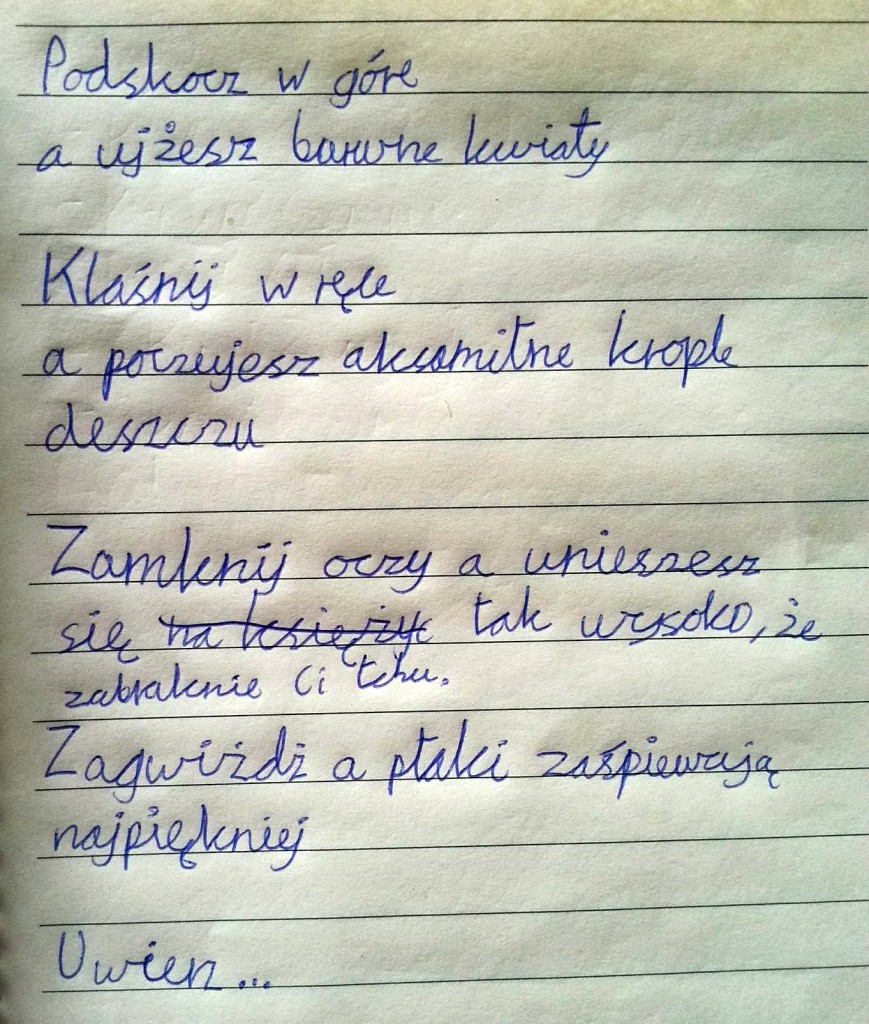 Podskocz w góre
a ujżesz barwne kwiaty
Klaśnij w ręce
a poczujesz aksamitne krople
deszczu
Zamknij oczy a unieszesz
się na księżyc tak wysoko, że
zabraknie Ci tchu.
Zagwiżdż a ptaki zaśpiewają
najpiękniej
Uwierz...